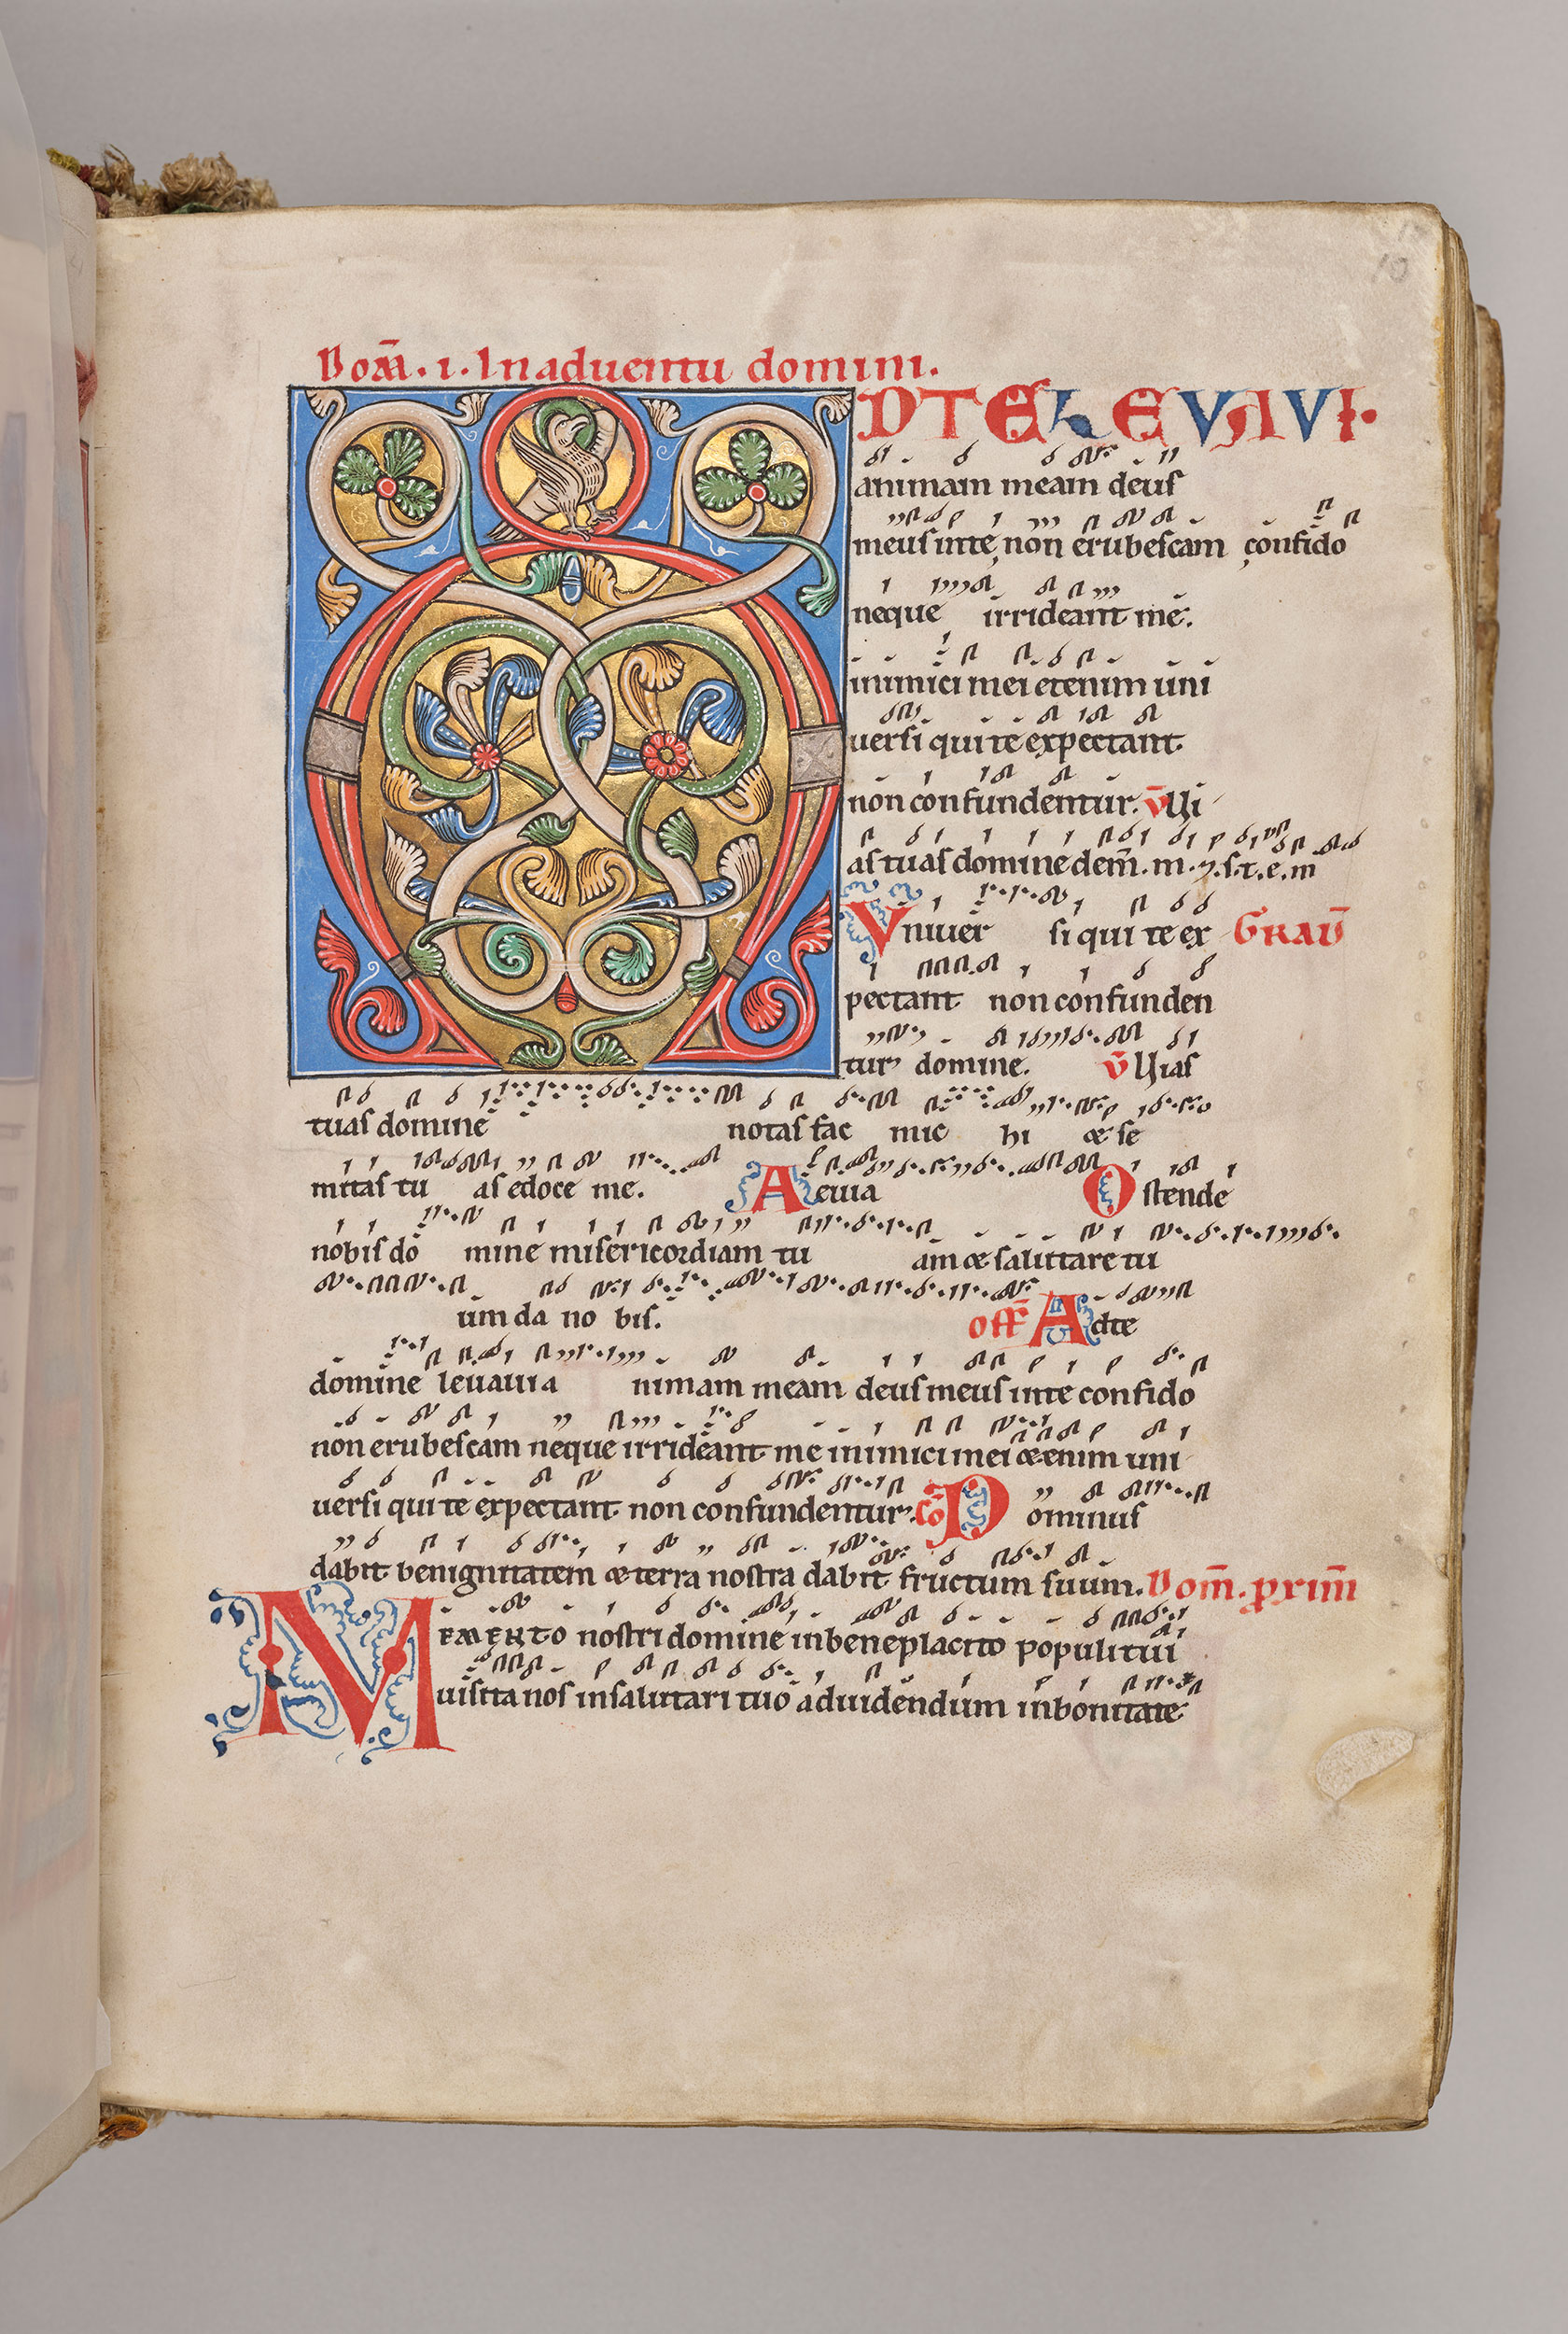 10
Dom̄. i. In aduentu domini.
AD TE LEVAVI.
animam meam deus
meus in te non erubescam confido
neque irrideant me.
inimici mei etenim uni
uersi qui te expectant
non confundentur. V̄ Ui
as tuas domine dem̄. m. ⁊. s. t. e. m
Vniuer si qui te ex GRAD̄
pectant non confunden
tur domine. V̄ Uias
tuas domine notas fac mic hi & se
mitas tu as edoce me. Aeuia Ostende
nobis do mine misericordiam tu am & salutare tu
um da no bis. Off̄ Ad te
domine leuaui a nimam meam deus meus in te confido
non erubescam neque irrideant me inimici mei &enim uni
uersi qui te expectant non confundentur. Cō Dominus
dabit benignitatem & terra nostra dabit fructum suum. Dom̄. prim̄
MEMENTO nostri domine in beneplacito populi tui
uisita nos in salutari tuo ad uidendum in bonitate